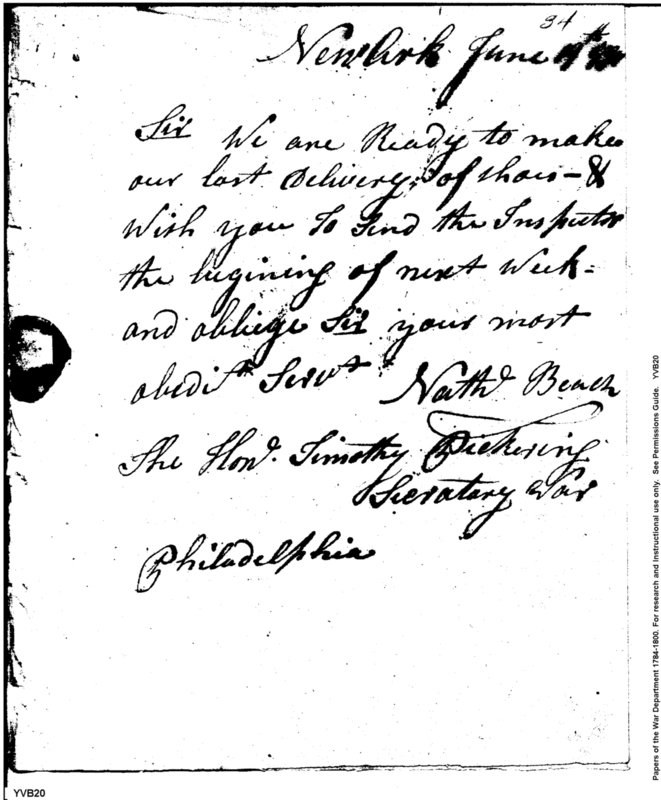 34
Newark June
Sir We are Ready to make
our last Delivery of shoes - &
Wish you To Send the Inspector
the begining of next Week -
and obliege Sir your most
obedit Servt Nathl Beach
The Hond. Timothy Pickering
Secratary War
Philadelphia
YVB20
Papers of the War Department 1784-1800. For research and Instructional use only. See Permissions Guide. YVB20